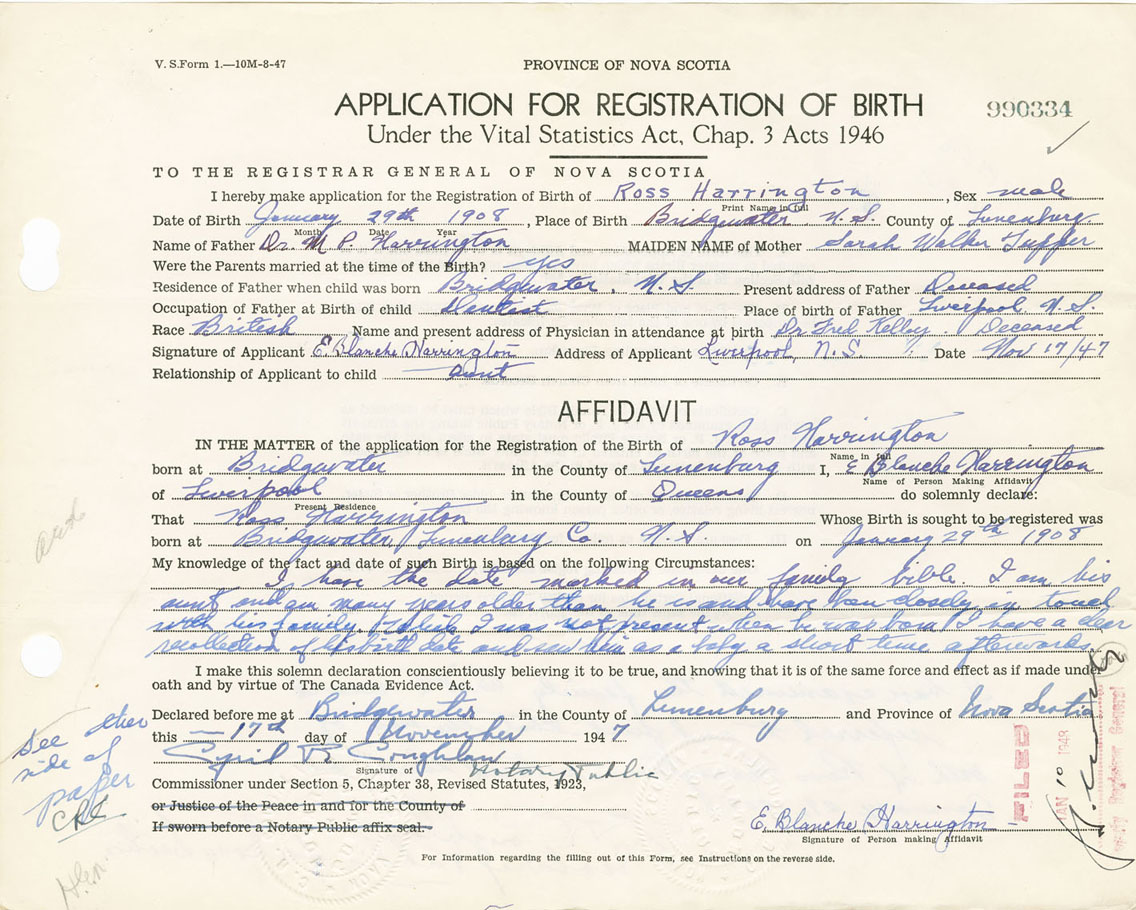 V. S.Form 1.—10M-8-47
PROVINCE OF NOVA SCOTIA
APPLICATION FOR REGISTRATION OF BIRTH
990334
Under the Vital Statistics Act, Chap. 3 Acts 1946
TO THE REGISTRAR GENERAL OF NOVA SCOTIA
I hereby make application for the Registration of Birth of Ross Harrington, Sex male
Print Name in full
Date of Birth January 29th 1908, Place of Birth Bridgwater, N.S. County of Lunenburg
Month Date Year
Name of Father Dr. M P. Harrington MAIDEN NAME of Mother Sarah Walker Tupper
Were the Parents married at the time of the Birth? yes
Residence of Father when child was born Bridgwater. N.S Present address of Father Deceased
Occupation of Father at Birth of child Dentist Place of birth of Father Liverpool N.S.
Race British Name and present address of Physician in attendance at birth Dr Fred Kelley. Deceased
Signature of Applicant E. Blanche Harrington Address of Applicant Liverpool, N.S. Date Nov 17/47
Relationship of Applicant to child aunt
AFFIDAVIT
IN THE MATTER of the application for the Registration of the Birth of Ross Harrington
Name in full
born at Bridgwater in the County of Lunenburg I, E Blanche Harrington
Name of Person Making Affidavit
of Liverpool in the County of Queens do solemnly declare:
Present Residence
That Ross Harrington Whose Birth is sought to be registered was
born at Bridgwater, Lunenburg Co. N.S. on January 29th 1908
My knowledge of the fact and date of such Birth is based on the following Circumstances:
I have the date marked in our family bible. I am his
aunt and am many years older than he is and have been closely in touch
with his family. While I was not present when he was born I have a clear
recollection of his birth date and saw him as a baby a short time afterwards.
I make this solemn declaration conscientiously believing it to be true, and knowing that it is of the same force and effect as if made under
oath and by virtue of The Canada Evidence Act.
Declared before me at Bridgewater in the County of Lunenburg and Province of Nova Scotia
this —17th day of November 1947
Cyril R Coughlan
Signature of
Notary Public
Commissioner under Section 5, Chapter 38, Revised Statutes, 1923,
or Justice of the Peace in and for the County of
If sworn before a Notary Public affix seal.
E. Blanche Harrington
Signature of Person making Affidavit
For Information regarding the filling out of this Form, see Instructions on the reverse side.
See other
side of
paper
CRC
FILED
JAN 10 1948
Deputy Registrar General